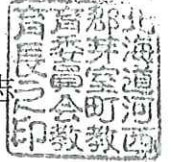 北海道河西
郡芽室町教
育委員会教
育長之印